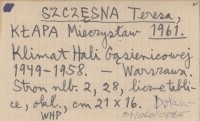 SZCZĘSNA Teresa,
KŁAPA Mieczysław 1961.
Klimat Hali Gąsienicowej
1949-1958. — Warszawa.
Stron nlb. 2, 28, liczne tabli-
ce, okł., cm 21 × 16.
WHP